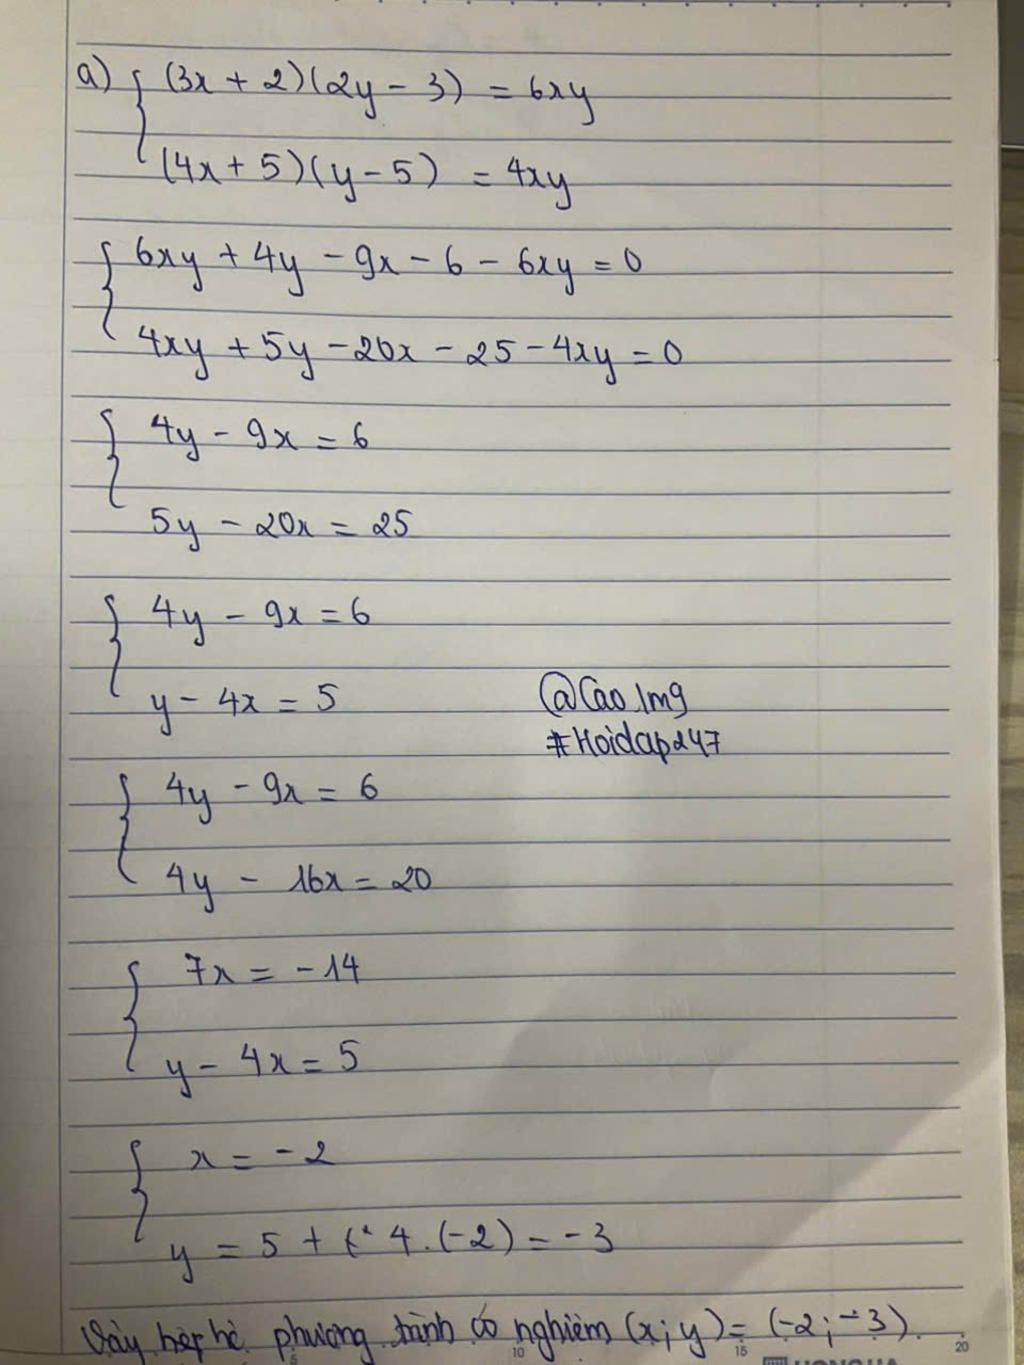 a) (3x + 2)(2y - 3) = 6xy
(4x + 5)(y - 5) = 4xy
6xy + 4y - 9x - 6 - 6xy = 0
4xy + 5y - 20x - 25 - 4xy = 0
4y - 9x = 6
5y - 20x = 25
4y - 9x = 6
y - 4x = 5
@Cao_1m9
#Hoidap247
4y - 9x = 6
4y - 16x = 20
7x = -14
y - 4x = 5
x = -2
y = 5 + 4.(-2) = -3
Vậy hệ phương trình có nghiệm (x; y) = (-2; -3).
5 10 15 20
HONG HA